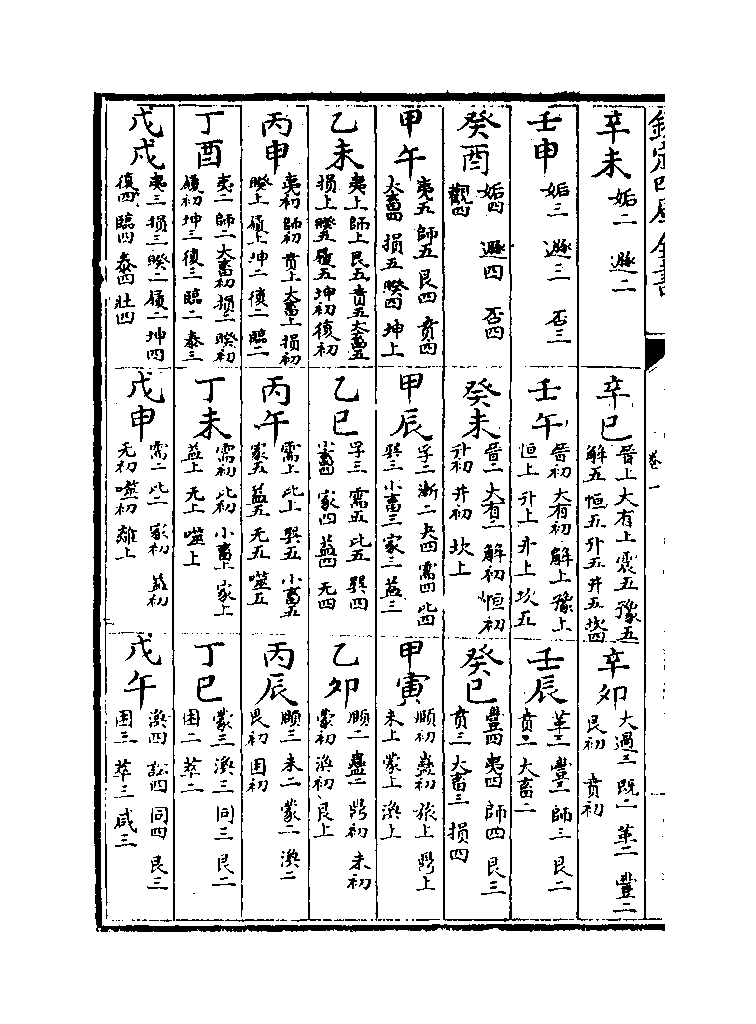 欽定四庫全書
卷一
辛未 姤二 遯二
壬申 姤三 遯三 否三
癸酉 姤四 遯四 否四
觀四
甲午 夷五 師五 艮四 賁四
大畜四 損五 睽四 坤上
乙未 夷上 師上 艮五 賁五 大畜五
損上 睽五 履五 坤初 復初
丙申 夷初 師初 賁上 大畜上 損初
睽上 履上 坤二 復二 臨二
丁酉 夷二 師二 大畜初 損二 睽初
履初 坤三 復三 臨二 泰三
戊戌 夷三 損三 睽二 履二 坤四
復四 臨四 泰四 壯四
辛巳 晉上 大有上 震五 豫五
解五 恒五 升五 井五 坎四
壬午 晉初 大有初 解上 豫上
恒上 升上 井上 坎五
癸未 晉二 大有二 解初 恒初
升初 井初 坎上
甲辰 孚二 漸二 夬四 需四 比四
巽三 小畜三 家三 益三
乙巳 孚三 需五 比五 巽四
小畜四 家四 益四 无四
丙午 需上 比上 巽五 小畜五
家五 益五 无五 噬五
丁未 需初 比初 小畜上 家上
益上 无上 噬上
戊申 需二 比二 家初 益初
无初 噬初 離上
辛卯 大過三 既二 革二 豐二
艮初 賁初
壬辰 革三 豐三 師三 艮二
賁二 大畜二
癸巳 豐四 夷四 師四 艮三
賁三 大畜三 損四
甲寅 頤初 蠱初 旅上 鼎上
未上 蒙上 渙上
乙卯 頤二 蠱二 鼎初 未初
蒙初 渙初 艮上
丙辰 頤三 未二 蒙二 渙二
艮初 困初
丁巳 蒙三 渙三 同三 艮二
困二 萃二
戊午 渙四 訟四 同四 艮三
困三 萃三 咸三